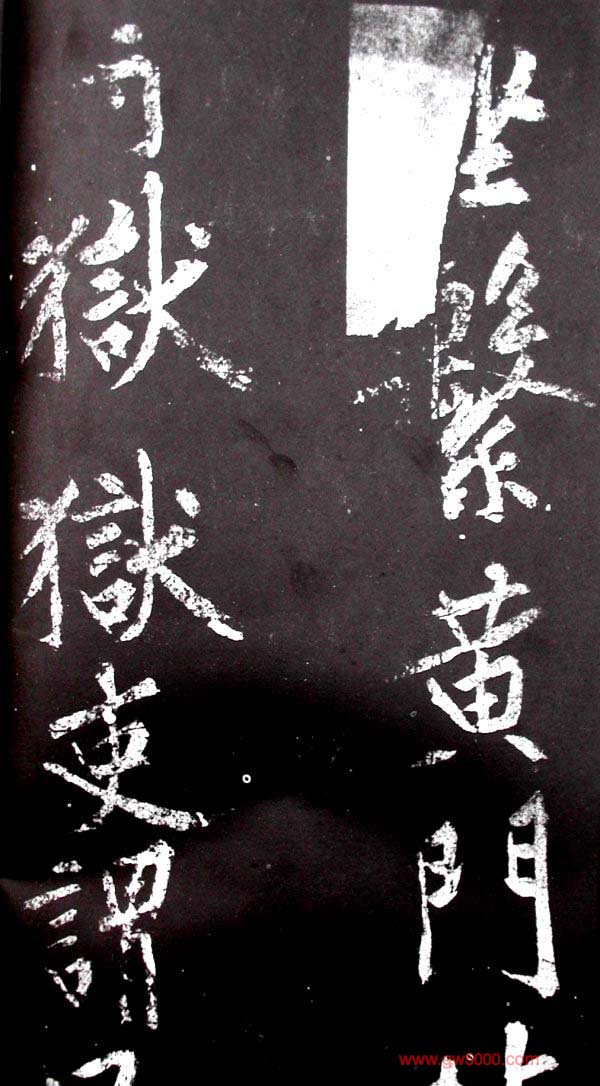 坐繫黃門
獄獄吏謂
www.gw9000.com